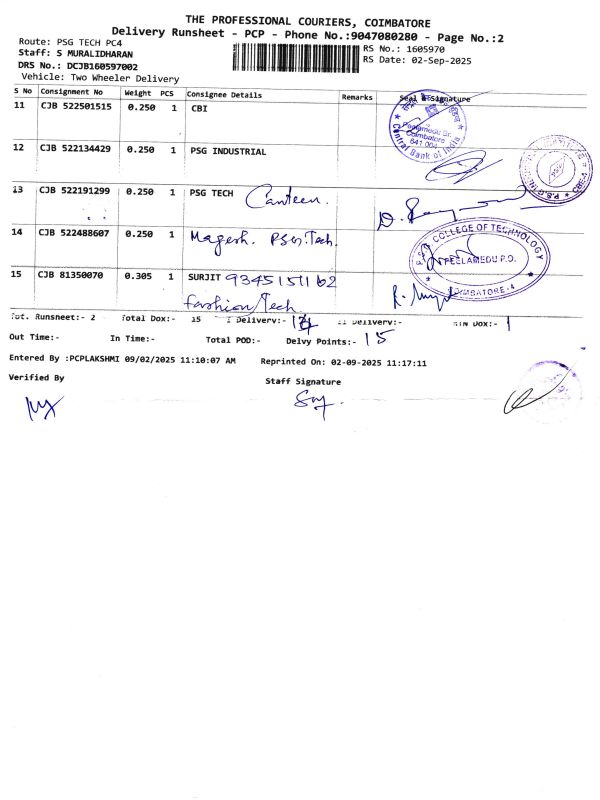 THE PROFESSIONAL COURIERS, COIMBATORE
Delivery Runsheet - PCP - Phone No.:9047080280 - Page No.:2
Route: PSG TECH PC4
Staff: S MURALIDHARAN
DRS No.: DCJB160597002
Vehicle: Two Wheeler Delivery
RS No.: 1605970
RS Date: 02-Sep-2025
S No Consignment No Weight PCS Consignee Details Remarks Seal & Signature
11 CJB 522501515 0.250 1 CBI
Peelamedu Br.
Coimbatore
641 004
Central Bank of India
12 CJB 522134429 0.250 1 PSG INDUSTRIAL
13 CJB 522191299 0.250 1 PSG TECH Canteen.
14 CJB 522488607 0.250 1 Magesh. PSG Tech.
P.S.G. COLLEGE OF TECHNOLOGY
PEELAMEDU P.O.
COIMBATORE-4
15 CJB 81350070 0.305 1 SURJIT 9345151162
fashion Tech
Tot. Runsheet:- 2 Total Dox:- 15 I Delivery:- II Delivery:- RTN Dox:- 1
Out Time:- In Time:- Total POD:- Delvy Points:- 15
Entered By :PCPLAKSHMI 09/02/2025 11:10:07 AM Reprinted On: 02-09-2025 11:17:11
Verified By
Staff Signature